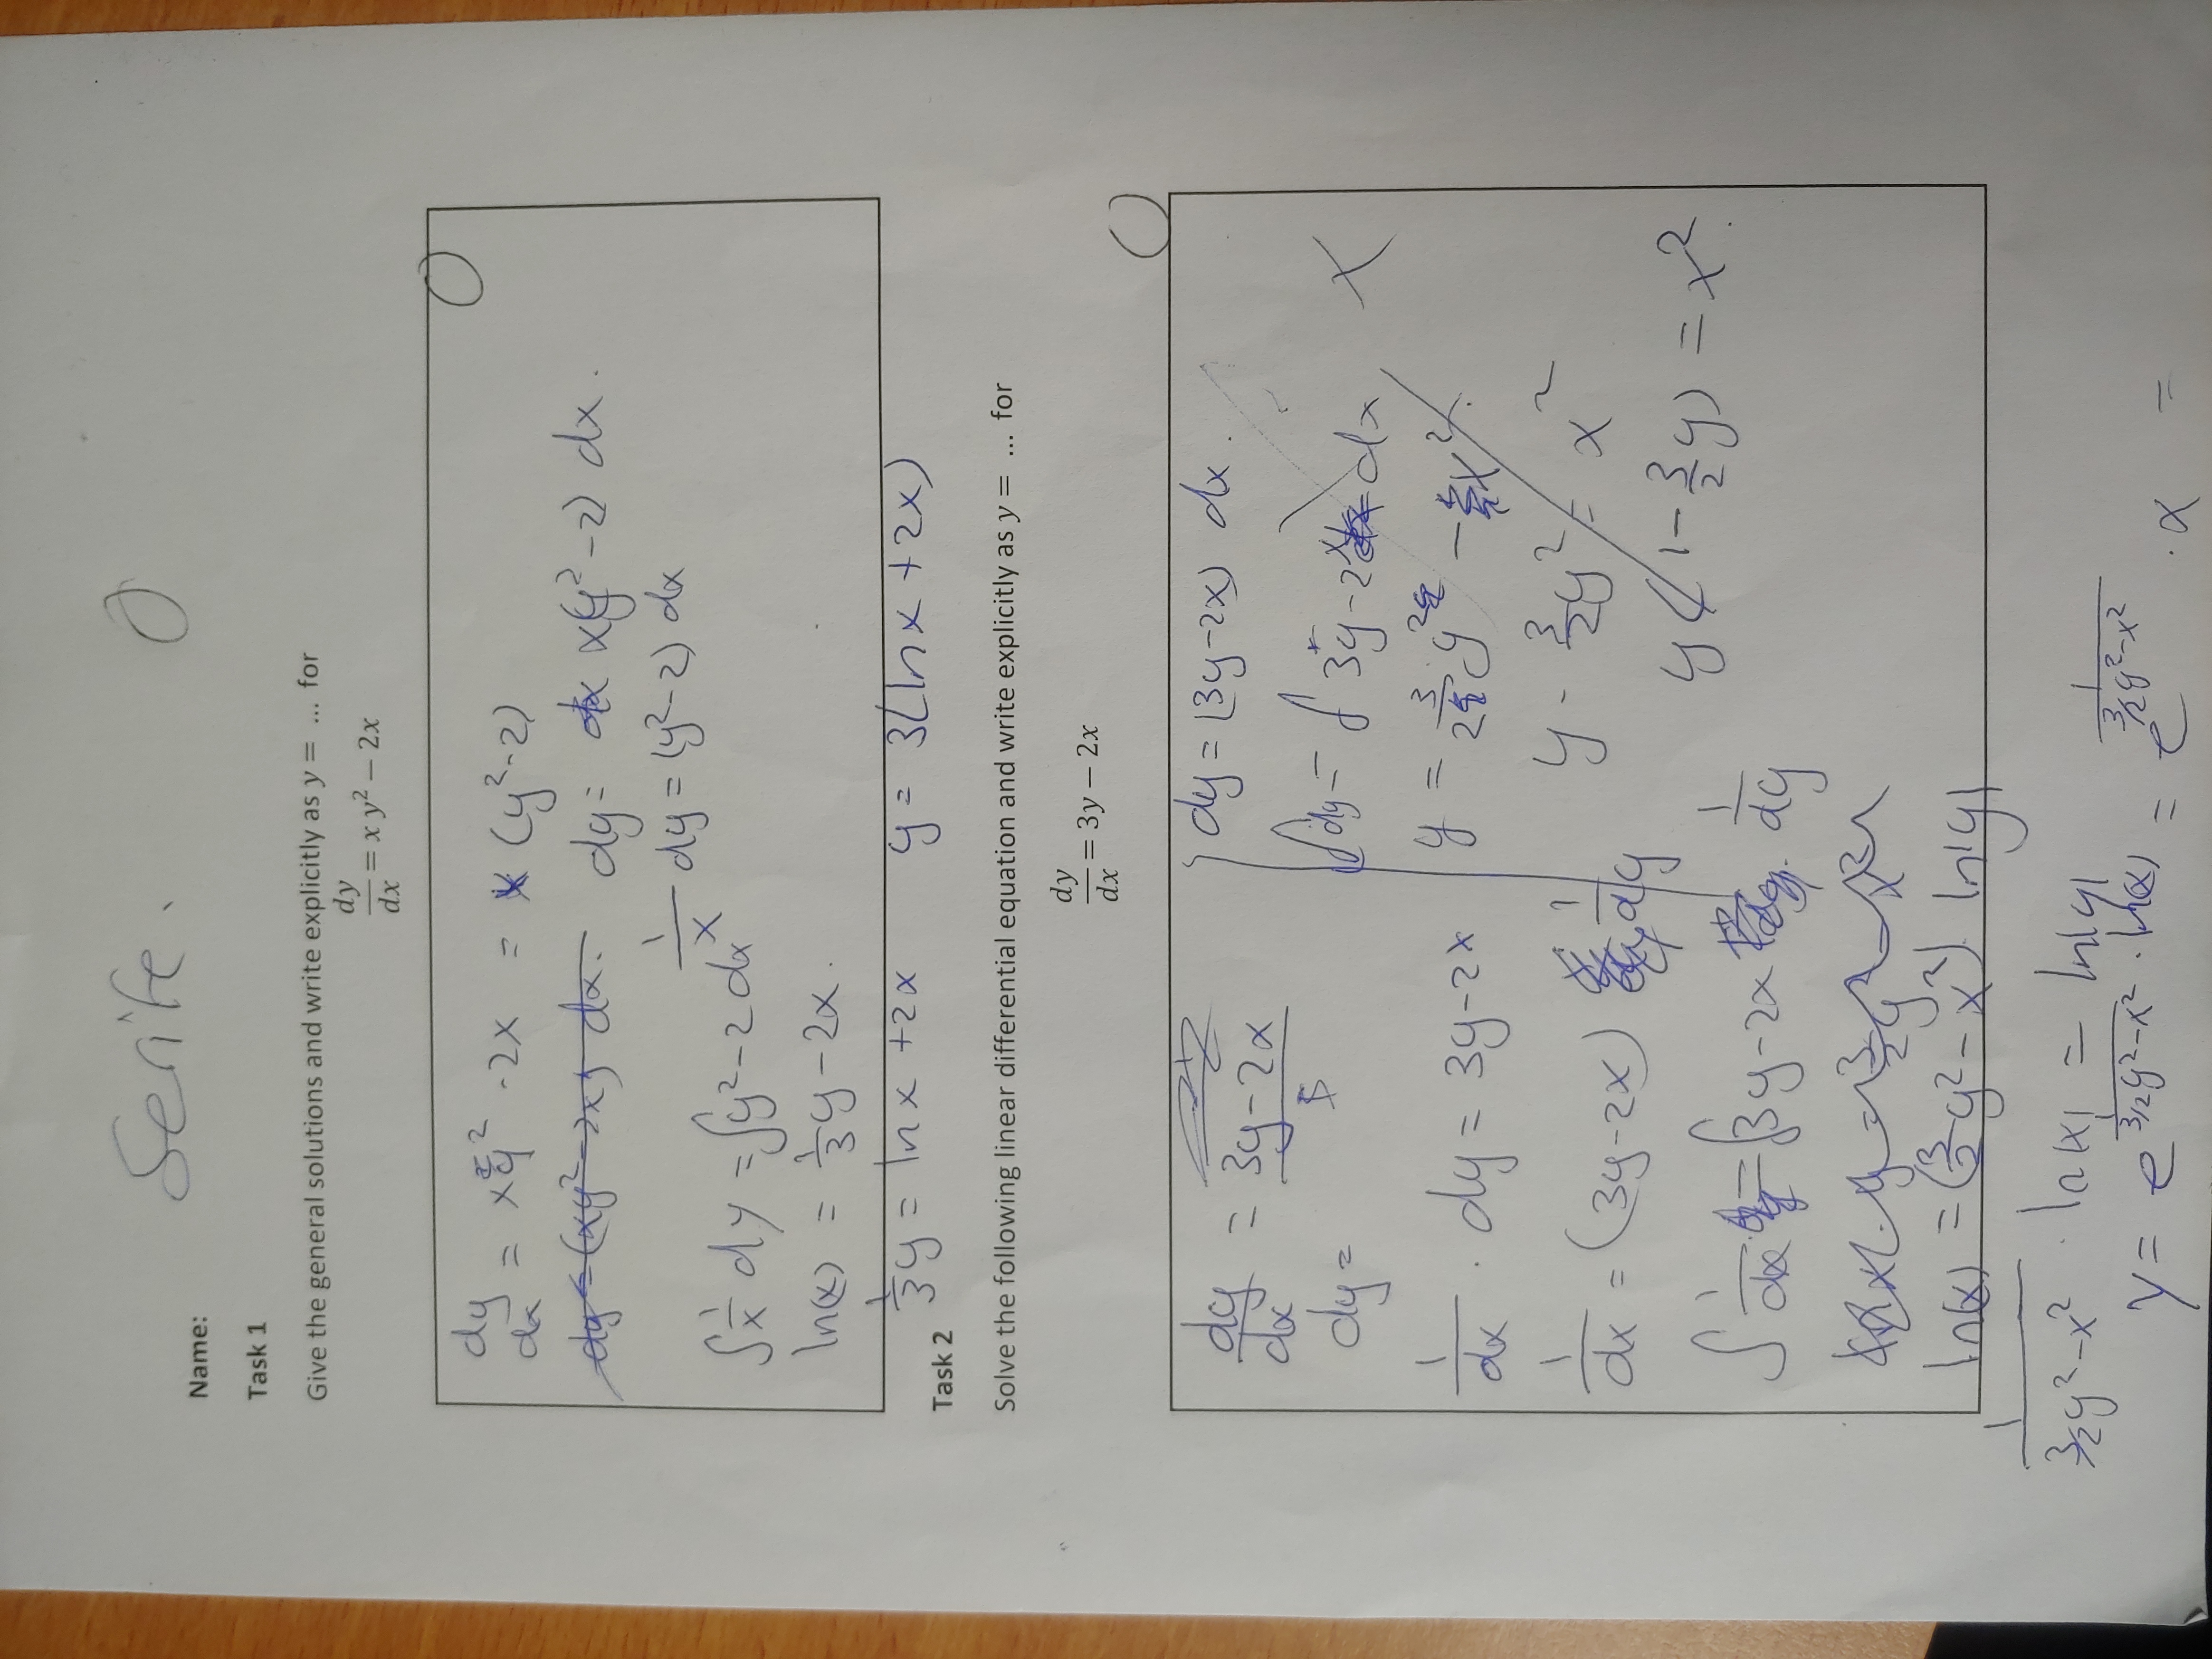 Name: Serife. 0
Task 1
Give the general solutions and write explicitly as y = ... for
dy/dx = x y² − 2x
0
dy/dx = xy² - 2x = x (y² - 2)
dy = (xy² - 2x) dx. dy = x(y² - 2) dx.
1/x dy = (y² - 2) dx
∫ 1/x dy = ∫ y² - 2 dx
ln(x) = 1/3 y - 2x.
1/3 y = ln x + 2x y = 3(ln x + 2x)
Task 2
Solve the following linear differential equation and write explicitly as y = ... for
dy/dx = 3y − 2x
0
dy/dx = 3y - 2x
dy =
1/dx . dy = 3y - 2x
1/dx = (3y - 2x) 1/dy
∫ 1/dx = ∫ 3y - 2x . 1/dy
ln(x) = (3/2 y² - x²) ln|y|
dy = (3y - 2x) dx.
∫ dy = ∫ 3y - 2x dx
y = 3/2 y² - x².
y - 3/2 y² = x²
y (1 - 3/2 y) = x².
1/(3/2 y² - x²) . ln|x| = ln|y|
y = e^(1/(3/2 y² - x²) . ln(x)) = e^(1/(3/2 y² - x²)) . x =